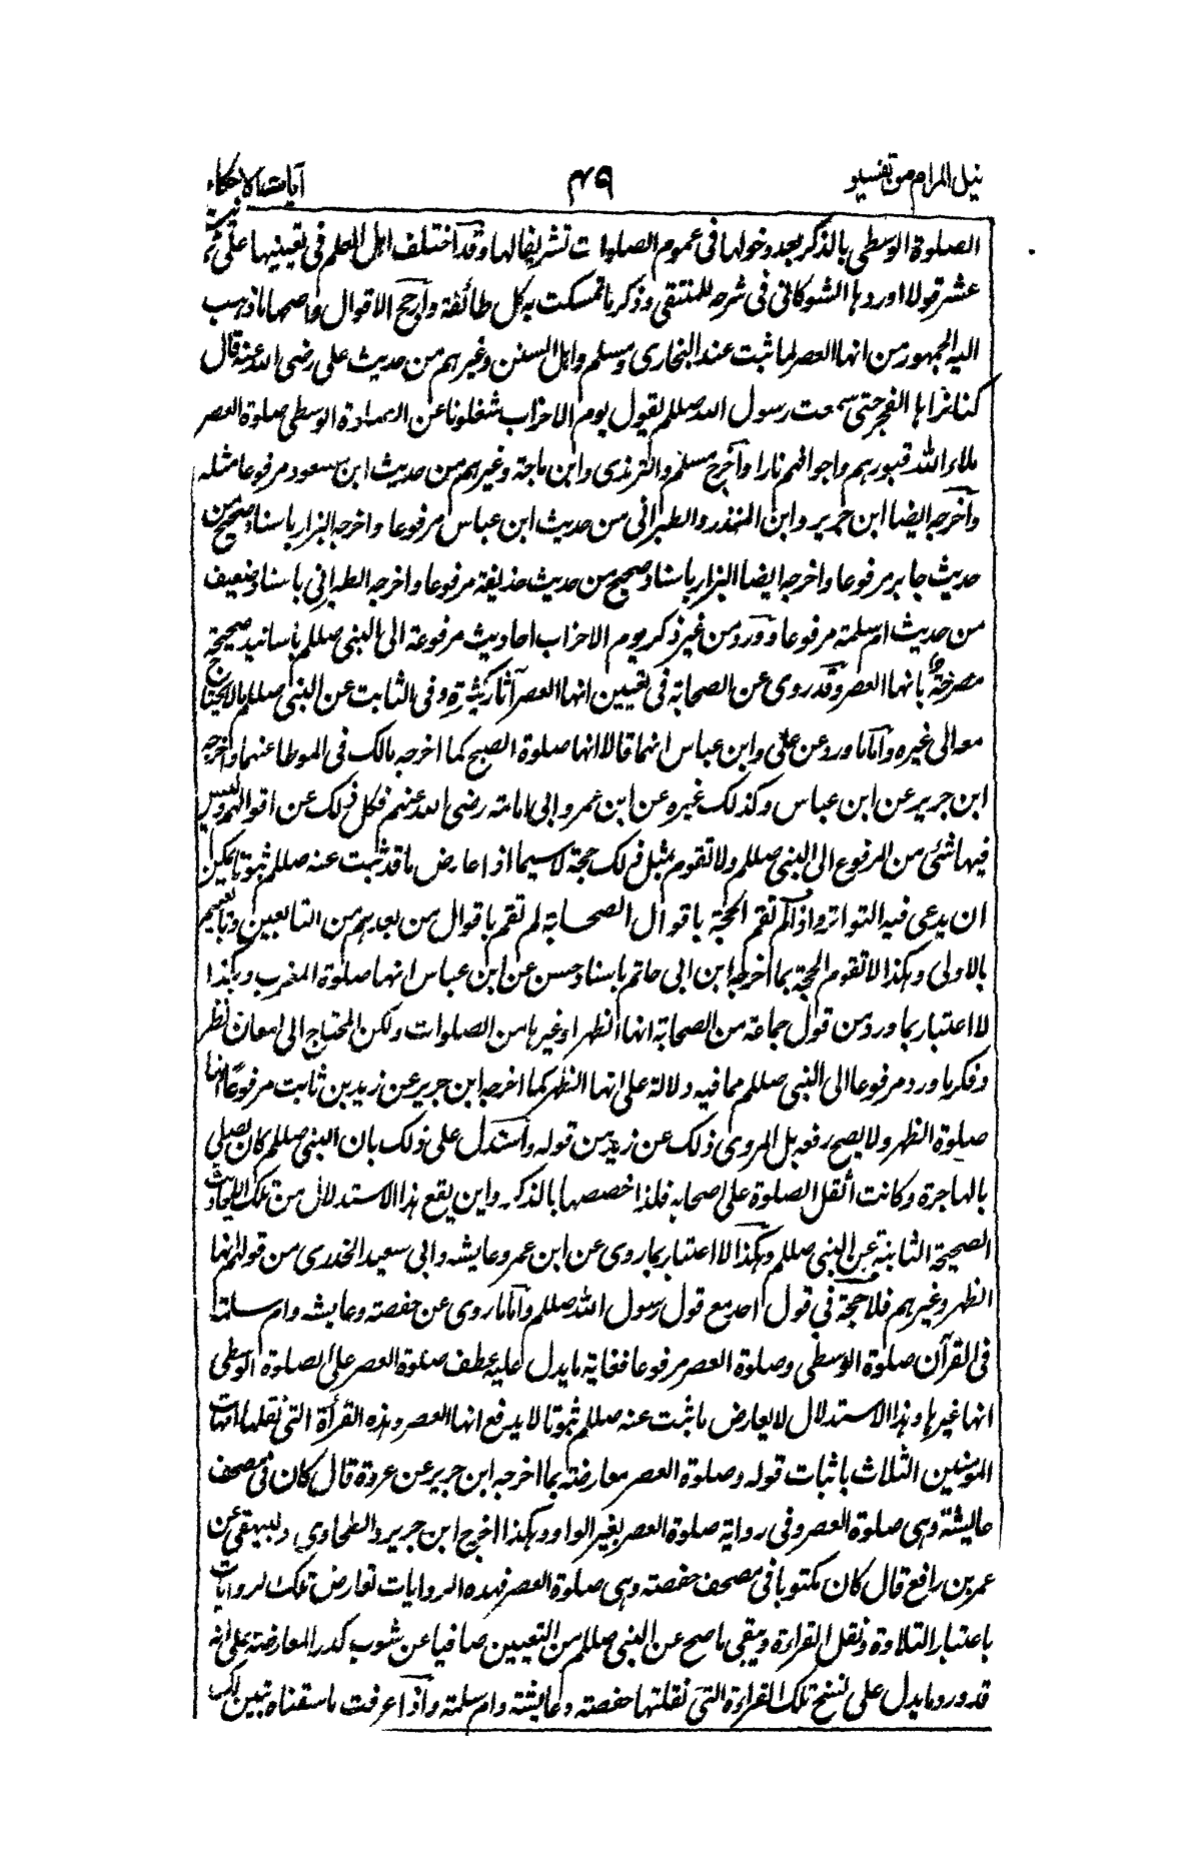 نيل المرام من تفسير
٤٩
آيات الاحكام
الصلوة الوسطى بالذكر بعد دخولها فى عموم الصلوات تشريفا لها وقد اختلف اهل العلم فى تعيينها على ثمانية
عشر قولا اوردها الشوكانى فى شرحه للمنتقى وذكر ما تمسكت به كل طائفة وارجح الاقوال واصحها ما ذهب
اليه الجمهور من انها العصر لما ثبت عند البخارى ومسلم واهل السنن وغيرهم من حديث على رضى الله عنه قال
كنا نراها الفجر حتى سمعت رسول الله صللم يقول يوم الاحزاب شغلونا عن الصلوة الوسطى صلوة العصر
ملاء الله قبورهم واجوافهم نارا واخرج مسلم والترمذى وابن ماجة وغيرهم من حديث ابن مسعود مرفوعا مثله
واخرجه ايضا ابن جرير وابن المنذر والطبرانى من حديث ابن عباس مرفوعا واخرجه البزار باسناد صحيح من
حديث جابر مرفوعا واخرجه ايضا البزار باسناد صحيح من حديث حذيفة مرفوعا واخرجه الطبرانى باسناد ضعيف
من حديث ام سلمة مرفوعا وورد من غير ذكر يوم الاحزاب احاديث مرفوعة الى النبى صللم باسانيد صحيحة
مصرحة بانها العصر وقد روى عن الصحابة فى تعيين انها العصر آثار كثيرة وفى الثابت عن النبى صللم ما لا يحتاج
معه الى غيره واما ما ورد عن على وابن عباس انهما قالا انها صلوة الصبح كما اخرجه مالك فى الموطا عنهما واخرجه
ابن جرير عن ابن عباس وكذلك غيره عن ابن عمر وابى امامة رضى الله عنهم فكل ذلك عن اقوالهم وليس
فيها شئ من المرفوع الى النبى صللم ولا تقوم بمثل ذلك حجة لا سيما اذا عارض ما قد ثبت عنه صللم ثبوتا يمكن
ان يدعى فيه التواتر واذا لم تقم الحجة باقوال الصحابة لم تقم باقوال من بعدهم من التابعين وتابعيهم
بالاولى وهكذا لا تقوم الحجة بما اخرجه ابن ابى حاتم باسناد حسن عن ابن عباس انها صلوة المغرب وهكذا
لا اعتبار بما ورد من قول جماعة من الصحابة انها الظهر او غيرها من الصلوات ولكن المحتاج الى امعان نظر
وفكر ما ورد مرفوعا الى النبى صللم مما فيه دلالة على انها الظهر كما اخرجه ابن جرير عن زيد بن ثابت مرفوعا انها
صلوة الظهر ولا يصح رفعه بل المروى ذلك عن زيد من قوله واستدل على ذلك بان النبى صللم كان يصلى
بالهاجرة وكانت اثقل الصلوة على اصحابه فلذا خصصها بالذكر واين يقع هذا الاستدلال من تلك الاحاديث
الصحيحة الثابتة عن النبى صللم وهكذا لا اعتبار بما روى عن ابن عمر وعايشه وابى سعيد الخدرى من قولهم انها
الظهر وغيرهم فلا حجة فى قول احد مع قول رسول الله صللم واما ما روى عن حفصة وعايشه وام سلمة
فى القرآن صلوة الوسطى وصلوة العصر مرفوعا فغاية ما يدل عليه عطف صلوة العصر على الصلوة الوسطى
انها غيرها وهذا الاستدلال لا يعارض ما ثبت عنه صللم ثبوتا لا يدفع انها العصر وهذه القرأة التى نقلها امهات
المومنين الثلاث باثبات قوله وصلوة العصر معارضة بما اخرجه ابن جرير عن عروة قال كان فى مصحف
عايشة وهى صلوة العصر وفى رواية صلوة العصر بغير الواو وهكذا اخرج ابن جرير والطحاوى والبيهقى عن
عمر بن رافع قال كان مكتوبا فى مصحف حفصة وهى صلوة العصر فهذه الروايات تعارض تلك الروايات
باعتبار التلاوة ونقل القراءة ويبقى ما صح عن النبى صللم من التعيين صافيا عن شوب كدر المعارضة على انه
قد ورد ما يدل على نسخ تلك القراءة التى نقلتها حفصة وعايشة وام سلمة واذا عرفت ما سقناه تبين لك